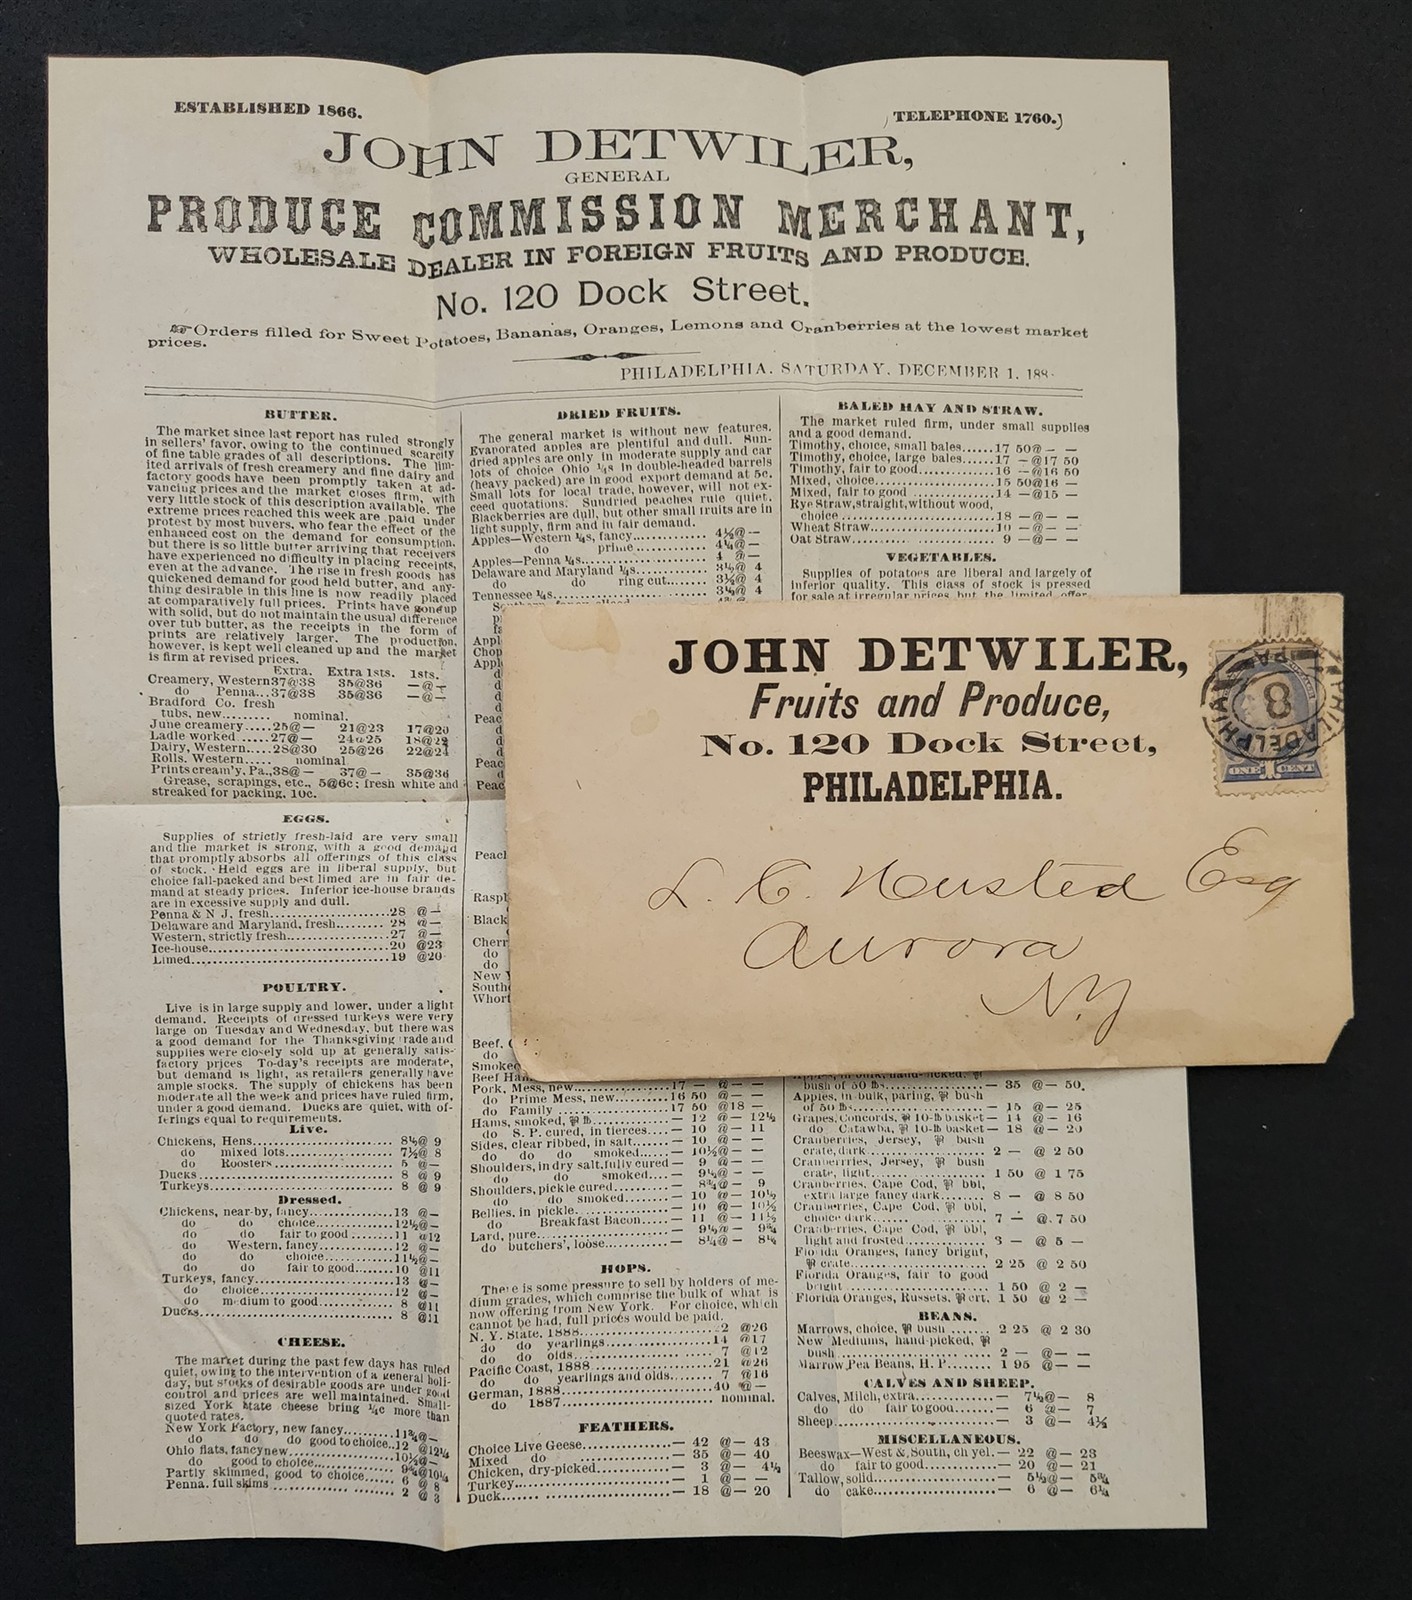 ESTABLISHED 1866.
TELEPHONE 1760.)
JOHN DETWILER,
GENERAL
PRODUCE COMMISSION MERCHANT,
WHOLESALE DEALER IN FOREIGN FRUITS AND PRODUCE.
No. 120 Dock Street.
☞Orders filled for Sweet Potatoes, Bananas, Oranges, Lemons and Cranberries at the lowest market
prices.
PHILADELPHIA, SATURDAY, DECEMBER 1, 188
BUTTER.
The market since last report has ruled strongly
in sellers' favor, owing to the continued scarcity
of fine table grades of all descriptions. The lim-
ited arrivals of fresh creamery and fine dairy and
factory goods have been promptly taken at ad-
vancing prices and the market closes firm, with
very little stock of this description available. The
extreme prices reached this week are paid under
protest by most buyers, who fear the effect of the
enhanced cost on the demand for consumption,
but there is so little butter arriving that receivers
have experienced no difficulty in placing receipts,
even at the advance. The rise in fresh goods has
quickened demand for good held butter, and any-
thing desirable in this line is now readily placed
at comparatively full prices. Prints have gone up
with solid, but do not maintain the usual difference
over tub butter, as the receipts in the form of
prints are relatively larger. The production,
however, is kept well cleaned up and the market
is firm at revised prices.
Extra. Extra 1sts. 1sts.
Creamery, Western 37@38 35@36 —@—
do Penna...37@38 35@36 —@—
Bradford Co. fresh
tubs, new......... nominal.
June creamery.....25@— 21@23 17@20
Ladle worked .....27@— 24@25 18@22
Dairy, Western.....28@30 25@26 22@24
Rolls. Western..... nominal
Prints cream'y, Pa.,38@— 37@— 35@36
Grease, scrapings, etc., 5@6c; fresh white and
streaked for packing, 10c.
EGGS.
Supplies of strictly fresh-laid are very small
and the market is strong, with a good demand
that promptly absorbs all offerings of this class
of stock. Held eggs are in liberal supply, but
choice fall-packed and best limed are in fair de-
mand at steady prices. Inferior ice-house brands
are in excessive supply and dull.
Penna & N J, fresh........28 @—
Delaware and Maryland, fresh........28 @—
Western, strictly fresh........27 @—
Ice-house........20 @23
Limed........19 @20
POULTRY.
Live is in large supply and lower, under a light
demand. Receipts of dressed turkeys were very
large on Tuesday and Wednesday, but there was
a good demand for the Thanksgiving trade and
supplies were closely sold up at generally satis-
factory prices To-day's receipts are moderate,
but demand is light, as retailers generally have
ample stocks. The supply of chickens has been
moderate all the week and prices have ruled firm,
under a good demand. Ducks are quiet, with of-
ferings equal to requirements.
Live.
Chickens, Hens........8½@ 9
do mixed lots........7½@ 8
do Roosters........5 @—
Ducks........8 @ 9
Turkeys........8 @ 9
Dressed.
Chickens, near-by, fancy........13 @—
do do choice........12½@—
do do fair to good........11 @12
do Western, fancy........12 @—
do do choice........11½@—
do do fair to good........10 @11
Turkeys, fancy........13 @—
do choice........12 @—
do medium to good........8 @11
Ducks........8 @11
CHEESE.
The market during the past few days has ruled
quiet, owing to the intervention of a general holi-
day, but stocks of desirable goods are under good
control and prices are well maintained. Small-
sized York State cheese bring ¼c more than
quoted rates.
New York Factory, new fancy........11¾@—
do do do good to choice..12 @12¼
Ohio flats, fancy new........10½@—
do good to choice........9¾@10¼
Partly skimmed, good to choice........6 @ 8
Penna. full skims........2 @ 3
DRIED FRUITS.
The general market is without new features.
Evaporated apples are plentiful and dull. Sun-
dried apples are only in moderate supply and car
lots of choice Ohio ¼s in double-headed barrels
(heavy packed) are in good export demand at 5c.
Small lots for local trade, however, will not ex-
ceed quotations. Sundried peaches rule quiet.
Blackberries are dull, but other small fruits are in
light supply, firm and in fair demand.
Apples—Western ¼s, fancy........4½@—
do prime........4¼@—
Apples—Penna ¼s........4 @—
Delaware and Maryland ¼s........3½@ 4
do do ring cut........3½@ 4
Tennessee ¼s........3½@ 4
Beef.
do
Smoked
Beef Ham
Pork, Mess, new........17 — @— —
do Prime Mess, new........16 50 @— —
do Family........17 50 @18 —
Hams, smoked, ⅌ lb........— 12 @— 12½
do S. P. cured, in tierces....— 10 @— 11
Sides, clear ribbed, in salt....— 10 @— —
do do do smoked....— 10½@— —
Shoulders, in dry salt, fully cured— 9 @— —
do do smoked....— 9½@— —
Shoulders, pickle cured........— 8¾@— 9
do do smoked........— 10 @— 10½
Bellies, in pickle........— 10 @— 10½
do Breakfast Bacon.....— 11 @— 11½
Lard, pure........— 9½@— 9¾
do butchers', loose........— 8¼@— 8½
HOPS.
There is some pressure to sell by holders of me-
dium grades, which comprise the bulk of what is
now offering from New York. For choice, which
cannot be had, full prices would be paid.
N. Y. State, 1888........2 @26
do do yearlings........14 @17
do do olds........7 @12
Pacific Coast, 1888........21 @26
do do yearlings and olds........7 @16
German, 1888........40 @—
do 1887........nominal.
FEATHERS.
Choice Live Geese........— 42 @— 43
Mixed do........— 35 @— 40
Chicken, dry-picked........— 3 @— 4½
Turkey........— 1 @— —
Duck........— 18 @— 20
BALED HAY AND STRAW.
The market ruled firm, under small supplies
and a good demand.
Timothy, choice, small bales......17 50@— —
Timothy, choice, large bales......17 —@17 50
Timothy, fair to good........16 —@16 50
Mixed, choice........15 50@16 —
Mixed, fair to good........14 —@15 —
Rye Straw, straight, without wood,
choice........18 —@— —
Wheat Straw........10 —@— —
Oat Straw........9 —@— —
VEGETABLES.
Supplies of potatoes are liberal and largely of
inferior quality. This class of stock is pressed
for sale at irregular prices, but the limited offer-
bush of 50 lbs........— 35 @— 50
Apples, in bulk, paring, ⅌ bush
of 50 lbs........— 15 @— 25
Grapes, Concords, ⅌ 10-lb basket— 14 @— 16
do Catawba, ⅌ 10-lb basket— 18 @— 20
Cranberries, Jersey, ⅌ bush
crate, dark........2 — @ 2 50
Cranberrries, Jersey, ⅌ bush
crate, light........1 50 @ 1 75
Cranberries, Cape Cod, ⅌ bbl,
extra large fancy dark........8 — @ 8 50
Cranberries, Cape Cod, ⅌ bbl,
choice dark........7 — @ 7 50
Cranberries, Cape Cod, ⅌ bbl,
light and frosted........3 — @ 5 —
Florida Oranges, fancy bright,
⅌ crate........2 25 @ 2 50
Florida Oranges, fair to good
bright........1 50 @ 2 —
Florida Oranges, Russets, ⅌ crt. 1 50 @ 2 —
BEANS.
Marrows, choice, ⅌ bush.......2 25 @ 2 30
New Mediums, hand-picked, ⅌
bush........2 — @— —
Marrow Pea Beans, H. P........1 95 @— —
CALVES AND SHEEP.
Calves, Milch, extra........— 7½@— 8
do do fair to good........— 6 @— 7
Sheep........— 3 @— 4½
MISCELLANEOUS.
Beeswax—West & South, ch yel.— 22 @— 23
do fair to good........— 20 @— 21
Tallow, solid........— 5½@— 5¾
do cake........— 6 @— 6¼
JOHN DETWILER,
Fruits and Produce,
No. 120 Dock Street,
PHILADELPHIA.
PHILADELPHIA PA
8
ONE 1 CENT
L. C. Husted Esq
Aurora
N.Y